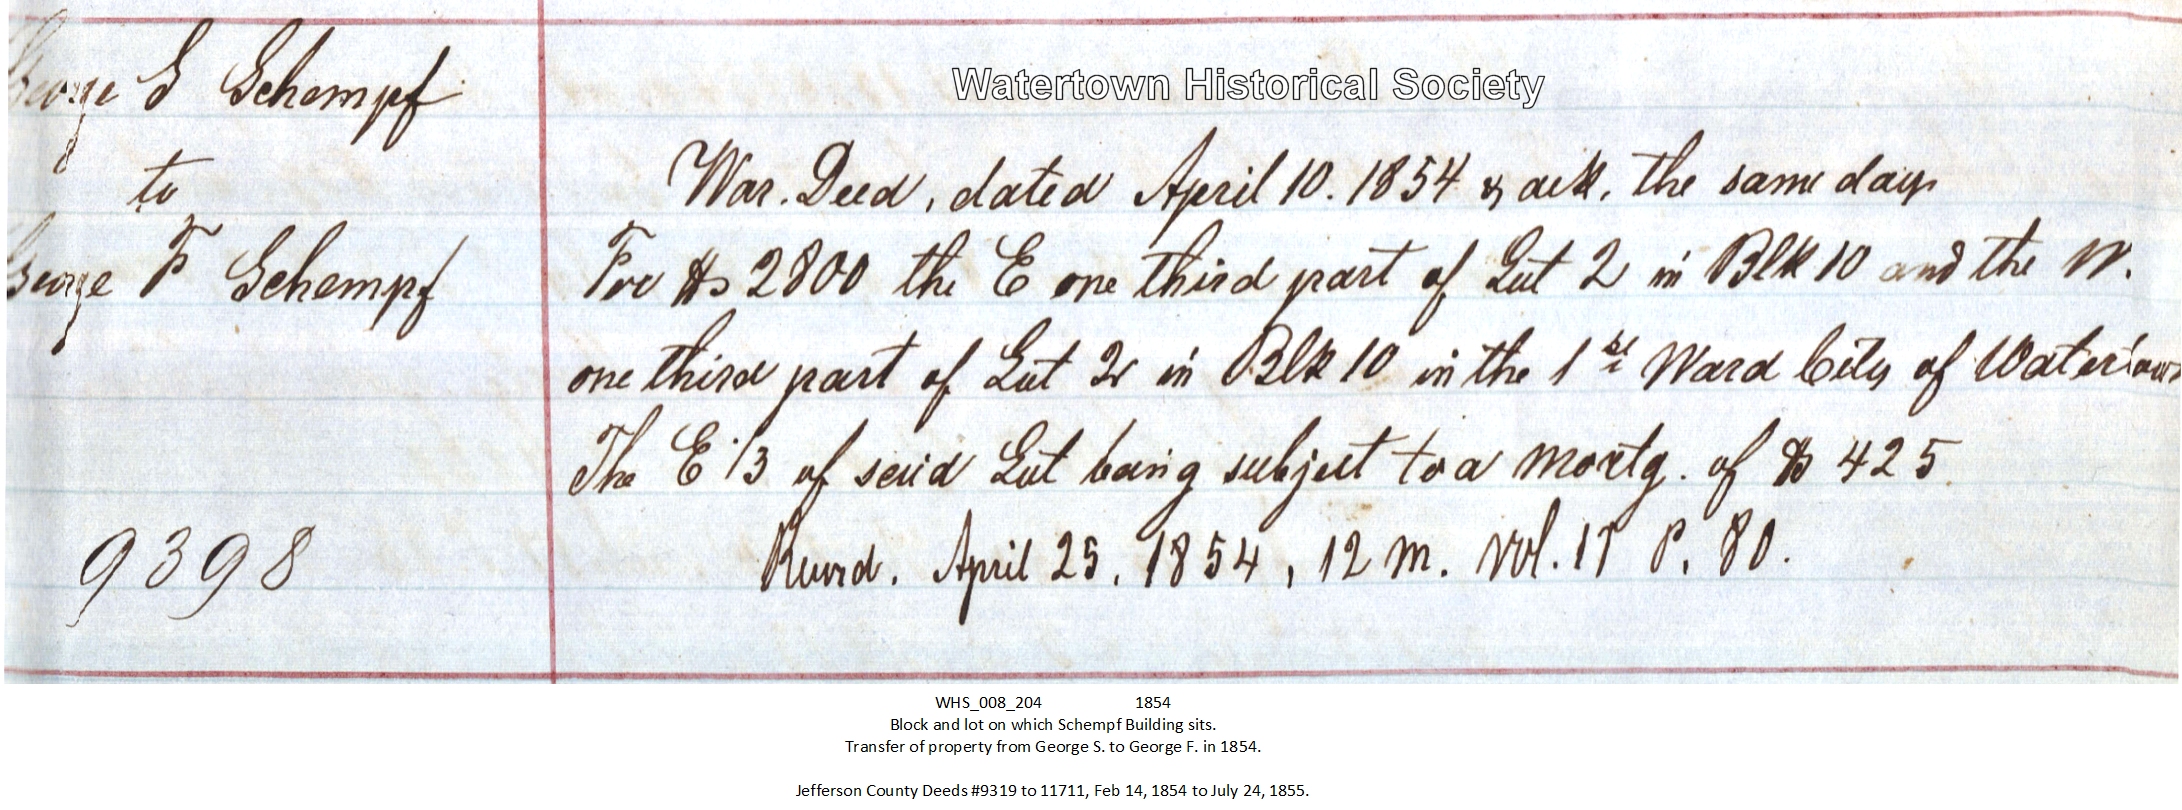 George S Schempf
to
George F Schempf
9398
Watertown Historical Society
War. Deed, dated April 10. 1854 & ack. the same day
For $ 2800 the E one third part of Lot 2 in Blk 10 and the W.
one third part of Lot 2 in Blk 10 in the 1st Ward City of Watertown
The E 1/3 of said Lot being subject to a mortg. of $ 425
Record. April 25, 1854, 12 M. Vol. 17 P. 80.
WHS_008_204 1854
Block and lot on which Schempf Building sits.
Transfer of property from George S. to George F. in 1854.
Jefferson County Deeds #9319 to 11711, Feb 14, 1854 to July 24, 1855.